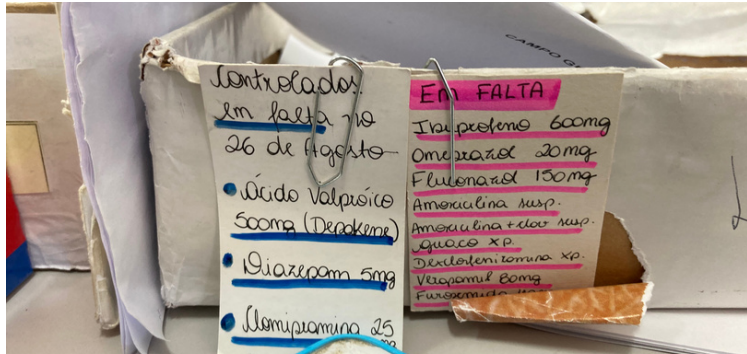 CAMPO
Controlados
em falta no
26 de Agosto
Ácido Valpróico
500mg (Depakene)
Diazepam 5mg
Clomipramina 25
mg
EM FALTA
Ibuprofeno 600mg
Omeprazol 20mg
Fluconazol 150mg
Amoxicilina susp.
Amoxicilina + clav susp.
guaco xp.
Dexclorfeniramina xp.
Verapamil 80mg
Furosemida